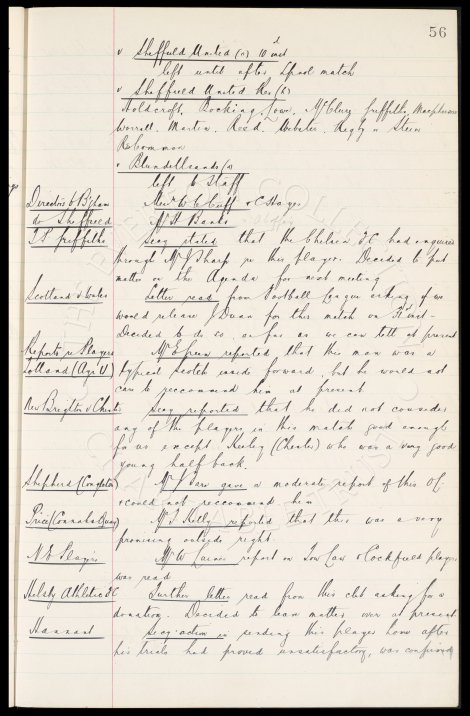 56
v Sheffield United (a) 10th inst
left until after L'pool match
v Sheffield United Res (h)
Holdcroft. Bocking, Lowe, McClure, Griffiths, Macpherson
Worrall. Martin. Reed. Webster. Rigby & Stein
R.
v Blundellsands (a)
left to Staff
Directors to B'ham Messrs W.C. Cuff & C. Hayes
to Sheffield Mr H Banks
T.P. Griffiths Secy stated that the Chelsea F.C had enquired
through Mr J Sharp re this player. Decided to put
matter on the Agenda for next meeting
Scotland v Wales Letter read from Football League asking if we
would release Dunn for this match on inst -
Decided to do so so far as we can tell at present
Reports re Players Mr E Green reported that this man was a
(Ayr U) typical Scotch inside forward, but he would not
care to reccommend him at present
New Brighton v Chester Secy reported that he did not consider
any of the players in this match good enough
for us except Keeley (Chester) who was a very good
young half back.
Shepherd (Congleton) Mr gave a moderate report of this OL
& could not reccommend him
Price (Connahs Quay) Mr J Kelly reported that this was a very
promising outside right
N.E Players Mr W report on Tow Law & Cockfield players
was read
Helsby Athletic F.C Further letter read from this club asking for a
donation. Decided to leave matter over at present.
Hannant Secy action in sending this player home after
his trials had proved unsatisfactory, was confirmed